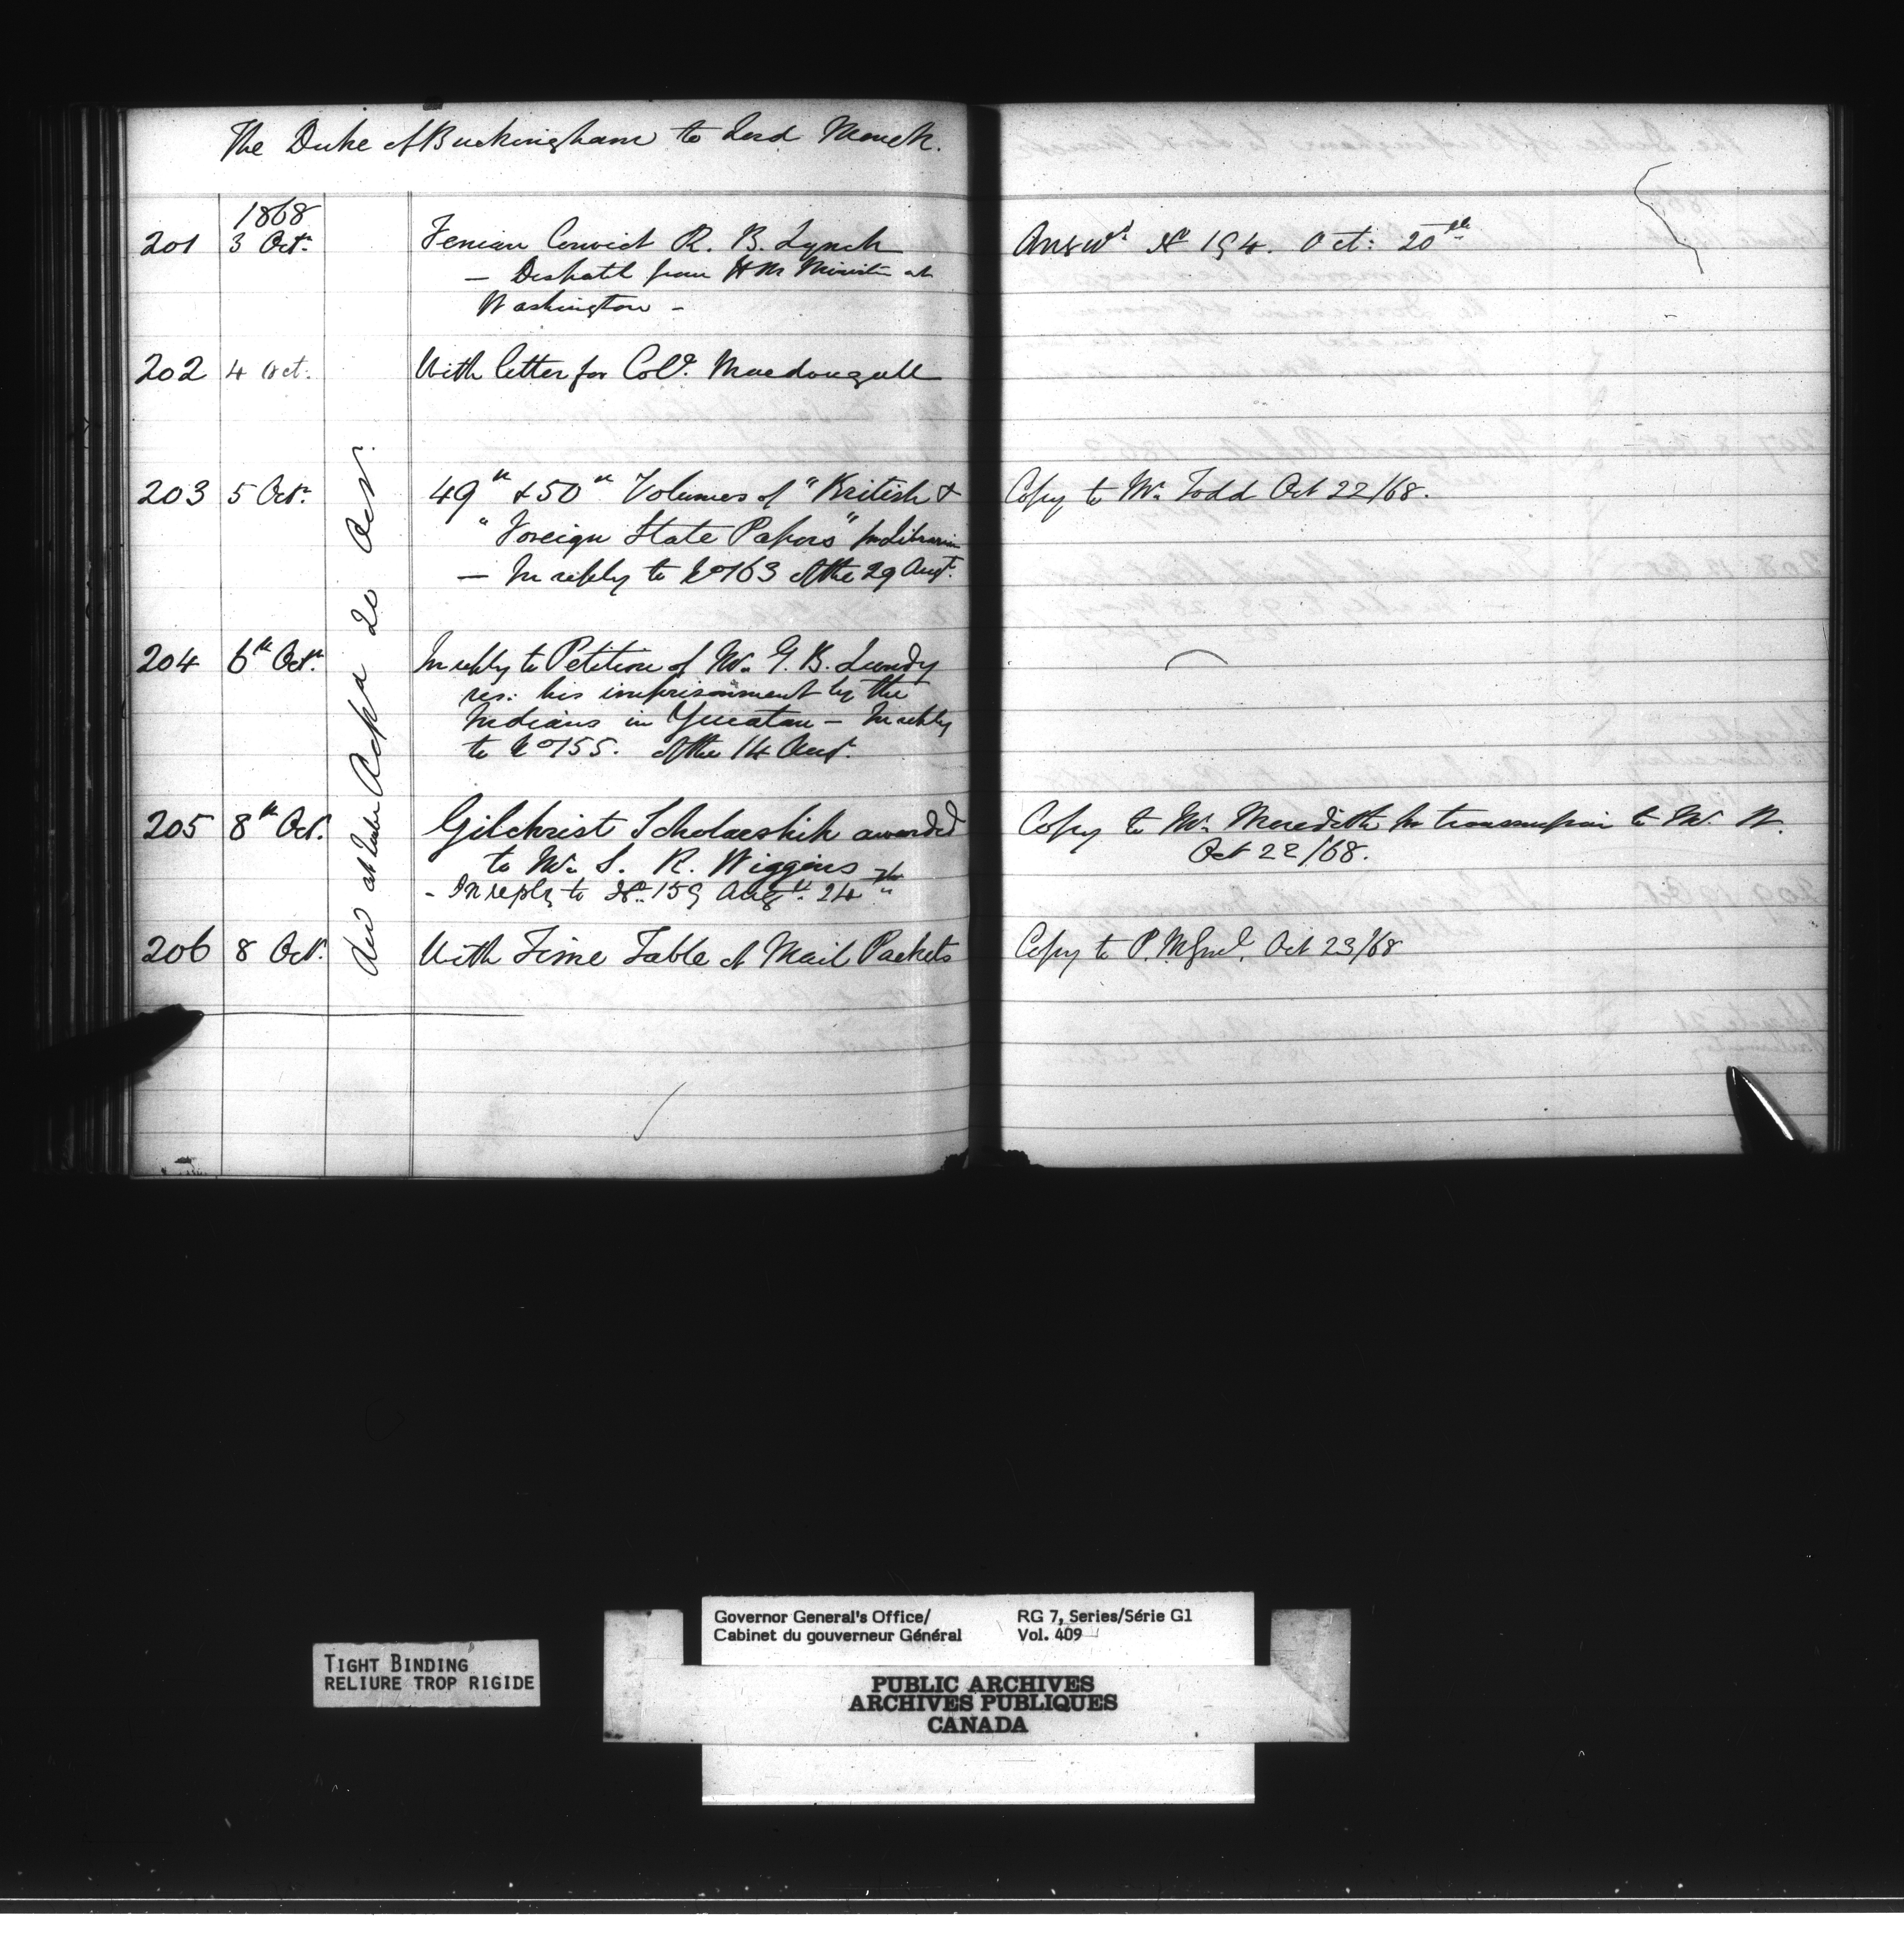 The Duke of Buckingham to Lord Monck.
1868
201 3 Octr. Fenian Convict R. B. Lynch Answd. No 194. Oct: 20th
— Despatch from H M Minister at
Washington —
202 4 Oct. With letter for Coll. Macdougall
203 5 Octr. 49th & 50th Volumes of "British & Copy to Mr. Todd Oct 22/68.
"Foreign State Papers" for Librarian
— In reply to No 163 of the 29 Augt.
204 6th Octr. In reply to Petition of Mr. G. B. Lundy
res: his imprisonment by the
Indians in Yucatan — In reply
to No 155. of the 14 Augt.
205 8th Oct. Gilchrist Scholarship awarded Copy to Mr. Meredith for transmission to Mr. W.
to Mr. S. R. Wiggins Oct 22/68.
- In reply to No. 159 Augt. 24th
206 8 Oct. With Time Table of Mail Packets Copy to P. M Genl. Oct 23/68
20 Octr.
TIGHT BINDING
RELIURE TROP RIGIDE
Governor General's Office/ RG 7, Series/Série G1
Cabinet du gouverneur Général Vol. 409
PUBLIC ARCHIVES
ARCHIVES PUBLIQUES
CANADA